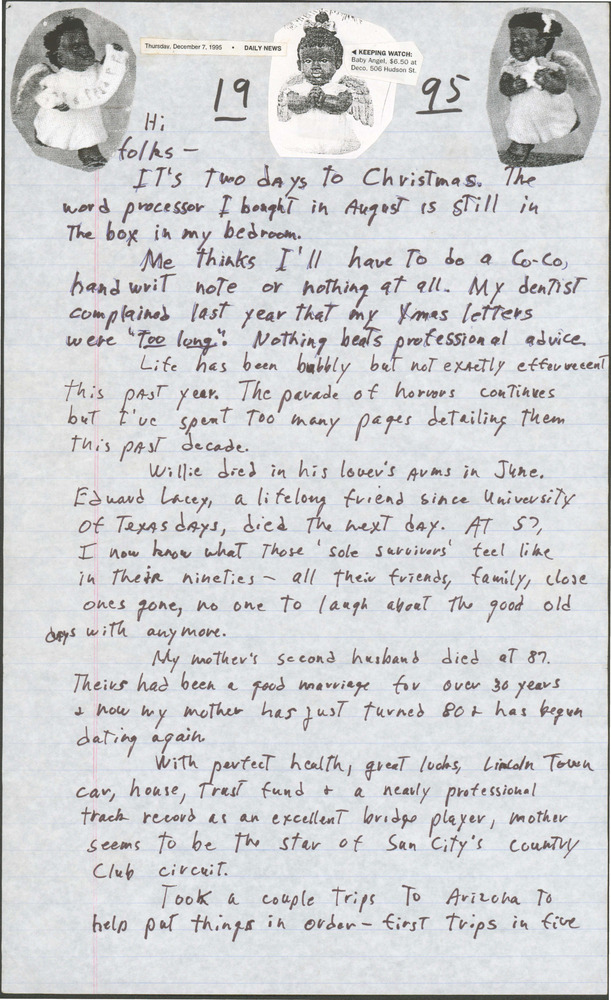 Thursday, December 7, 1995 • DAILY NEWS
◀ KEEPING WATCH:
Baby Angel, $6.50 at
Deco, 506 Hudson St.
19 95
Hi
folks —
IT's two days to Christmas. The
word processor I bought in August is still in
The box in my bedroom.
Me thinks I'll have to do a Co-Co,
hand writ note or nothing at all. My dentist
complained last year that my Xmas letters
were "Too long". Nothing beats professional advice.
Life has been bubbly but not exactly effervecent
this past year. The parade of horrors continues
but I've spent Too many pages detailing them
this past decade.
Willie died in his lover's arms in June.
Edward Lacey, a lifelong friend since University
Of Texas days, died The next day. AT 57,
I now know what Those 'sole survivors' feel like
in their nineties — all their friends, family, close
ones gone, no one to laugh about The good old
days with anymore.
My mother's second husband died at 87.
Theirs had been a good marriage for over 30 years
& now my mother has just turned 80 & has begun
dating again
With perfect health, great looks, Lincoln Town
car, house, Trust fund & a nearly professional
track record as an excellent bridge player, mother
seems to be The star of Sun City's country
Club circuit.
Took a couple Trips To Arizona To
help put things in order — first trips in five